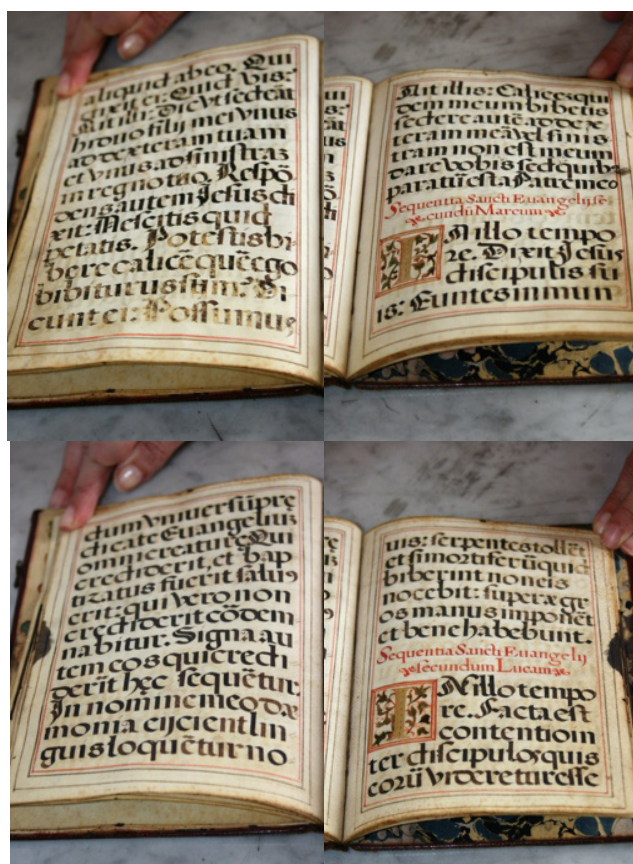 aliquid ab eo. Qui
dixit ei: Quid vis?
Ait illi: Dic vt sedeāt
hi duo filij mei vnus
ad dexteram tuam
et vnus ad sinistrā
in regno tuo. Respō
dens autem Jesus di
xit: Nescitis quid
petatis. Potestis bi
bere calicē quē ego
bibiturus sum? Di
cunt ei: Possumus
Ait illis: Calicē qui
dem meum bibetis
sedere autē ad dex
teram meā vel sinis
tram non est meum
dare vobis sed quib
paratū est a Patre meo
Sequentia Sancti Euangelij se
cundū Marcum
IN illo tempo
re. Dixit Jesus
discipulis su
is: Euntes in mun
dum vniuersū prę
dicate Euangeliū
omni creaturę Qui
crediderit, et bap
tizatus fuerit saluus
erit: qui vero non
crediderit cōdem
nabitur. Signa au
tem eos qui credi
derīt hęc sequētur.
In nomine meo dæ
monia eijcient lin
guis loquētur no
uis: serpentes tollēt
et si mortiferū quid
biberint non eis
nocebit: super æ gr
os manus imponēt
et bene habebunt.
Sequentia Sancti Euangelij
secundum Lucam
IN illo tempo
re. Facta est
contentio in
ter discipulos quis
eorū videretur esse